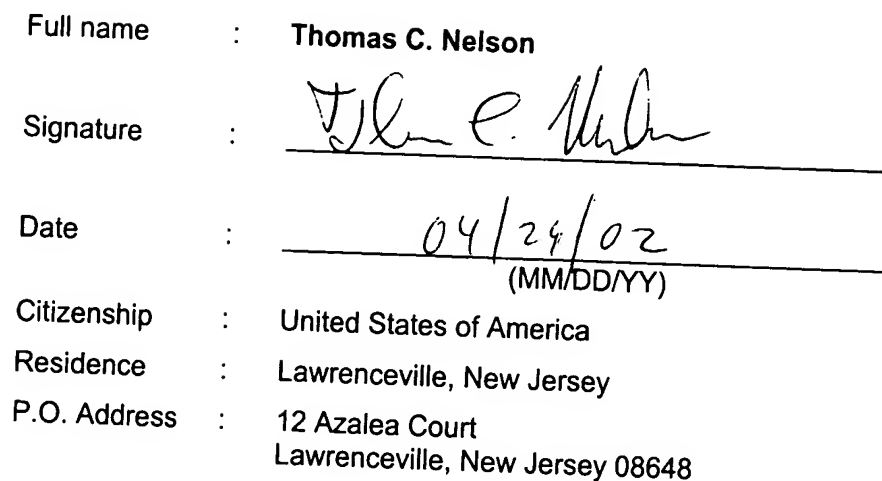 Full name : Thomas C. Nelson
Signature : Thomas C. Nelson
Date : 04/24/02
(MM/DD/YY)
Citizenship : United States of America
Residence : Lawrenceville, New Jersey
P.O. Address : 12 Azalea Court
Lawrenceville, New Jersey 08648